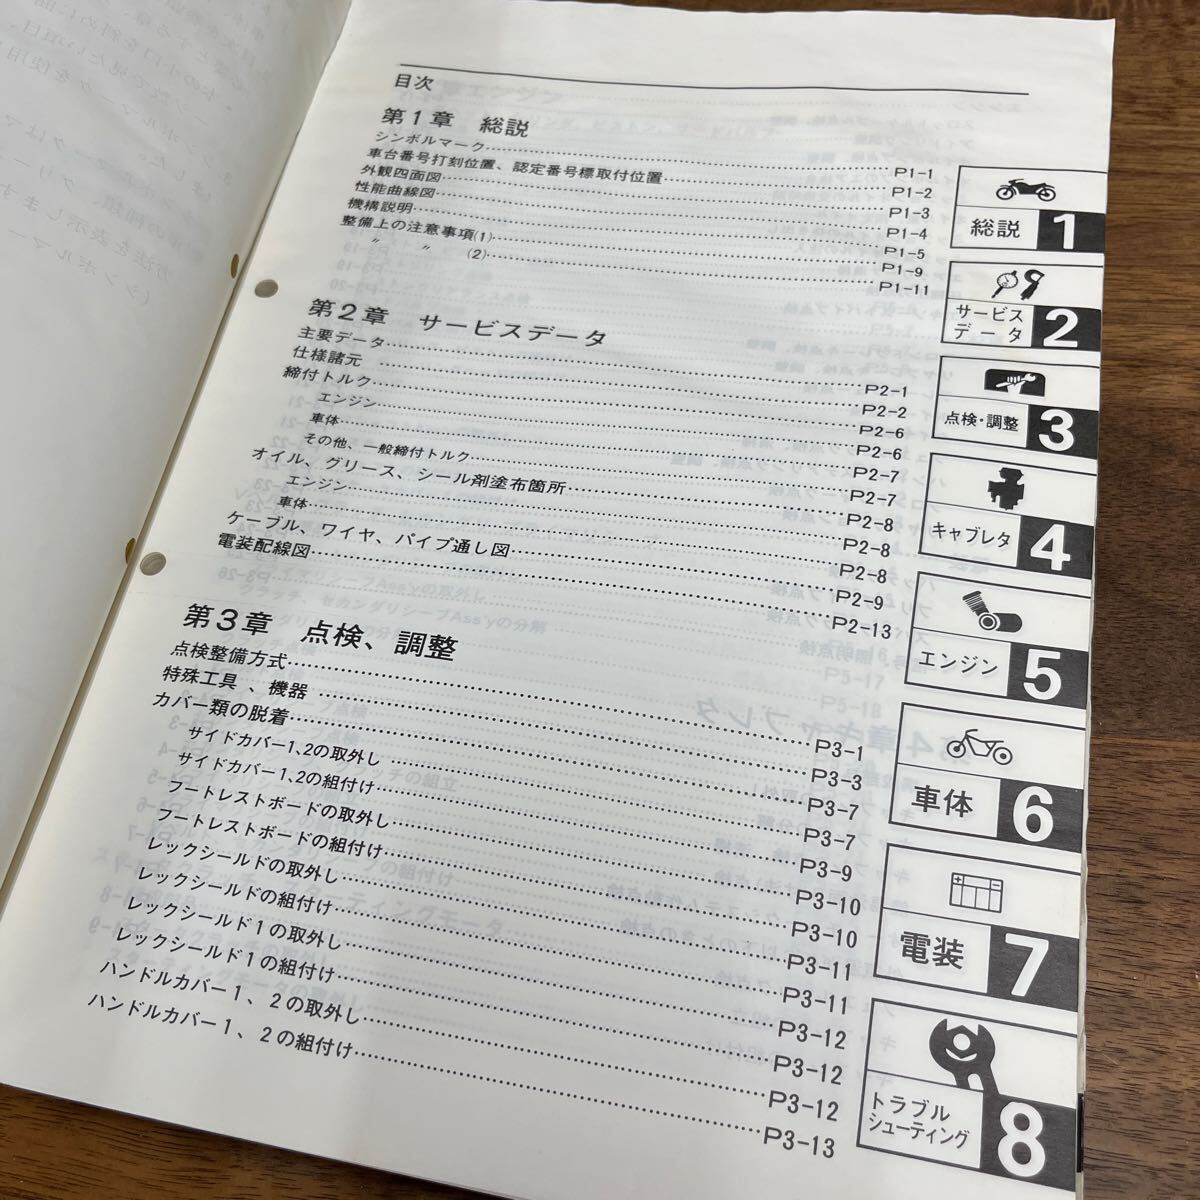 目次
第1章 総説
シンボルマーク P1-1
車台番号打刻位置、認定番号標取付位置 P1-2
外観四面図 P1-3
性能曲線図 P1-4
機構説明 P1-5
整備上の注意事項(1) P1-9
〃 〃 (2) P1-11
第2章 サービスデータ
主要データ P2-1
仕様諸元 P2-2
締付トルク P2-6
エンジン P2-6
車体 P2-7
その他、一般締付トルク P2-7
オイル、グリース、シール剤塗布箇所 P2-8
エンジン P2-8
車体 P2-8
ケーブル、ワイヤ、パイプ通し図 P2-9
電装配線図 P2-13
第3章 点検、調整
点検整備方式 P3-1
特殊工具、機器 P3-3
カバー類の脱着 P3-7
サイドカバー1、2の取外し P3-7
サイドカバー1、2の組付け P3-9
フートレストボードの取外し P3-10
フートレストボードの組付け P3-10
レックシールドの取外し P3-11
レックシールドの組付け P3-11
レックシールド1の取外し P3-12
レックシールド1の組付け P3-12
ハンドルカバー1、2の取外し P3-12
ハンドルカバー1、2の組付け P3-13
総説 1
サービス
データ 2
点検・調整 3
キャブレタ 4
エンジン 5
車体 6
電装 7
トラブル
シューティング 8